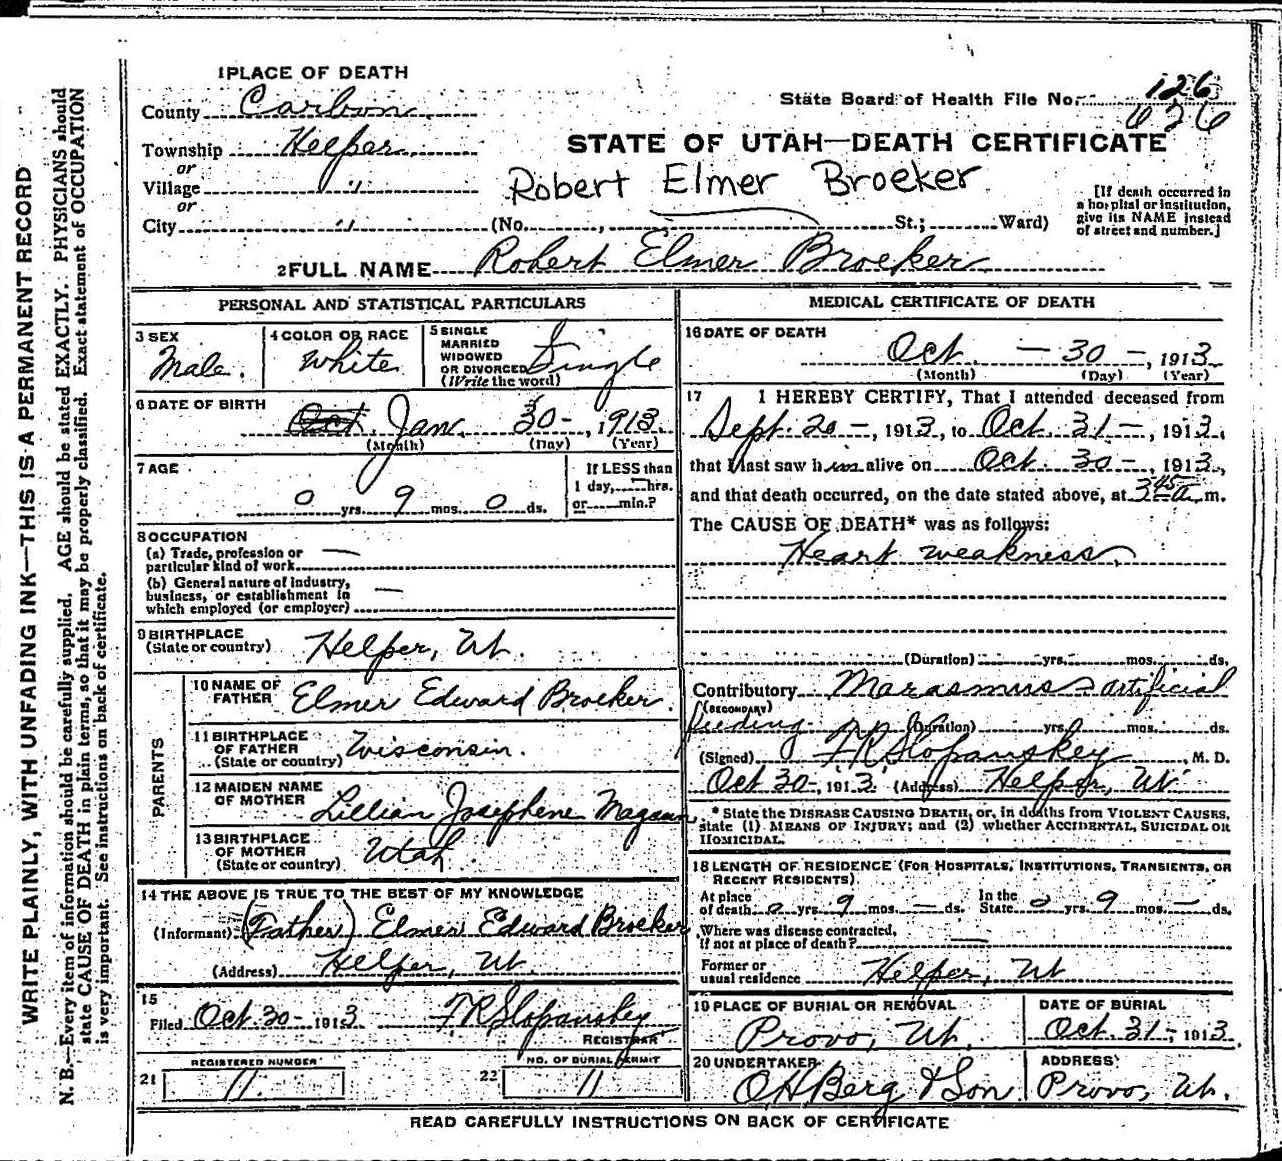 1 PLACE OF DEATH
County Carbon
State Board of Health File No. 126
626
Township Helper
or
STATE OF UTAH—DEATH CERTIFICATE
Village "
or
Robert Elmer Broeker
[If death occurred in
a hospital or institution,
give its NAME instead
of street and number.]
City " (No. , St.; Ward)
2 FULL NAME Robert Elmer Broeker
PERSONAL AND STATISTICAL PARTICULARS
3 SEX
Male.
4 COLOR OR RACE
White
5 SINGLE
MARRIED
WIDOWED
OR DIVORCED
(Write the word)
Single
6 DATE OF BIRTH
Oct. Jan. 30-, 1913
(Month) (Day) (Year)
7 AGE
0 yrs. 9 mos. 0 ds.
If LESS than
1 day, hrs.
or min.?
8 OCCUPATION
(a) Trade, profession or —
particular kind of work
(b) General nature of industry,
business, or establishment in —
which employed (or employer)
9 BIRTHPLACE
(State or country) Helper, Ut.
PARENTS
10 NAME OF
FATHER Elmer Edward Broeker.
11 BIRTHPLACE
OF FATHER
(State or country) Wisconsin.
12 MAIDEN NAME
OF MOTHER Lillian Josephene
13 BIRTHPLACE
OF MOTHER
(State or country) Utah
14 THE ABOVE IS TRUE TO THE BEST OF MY KNOWLEDGE
(Informant) (Father) Elmer Edward Broeker
(Address) Helper, Ut.
15
Filed Oct. 30-1913 F R Slopanskey
REGISTRAR
REGISTERED NUMBER
21 11
NO. OF BURIAL PERMIT
22 11
MEDICAL CERTIFICATE OF DEATH
16 DATE OF DEATH
Oct. — 30 —, 1913
(Month) (Day) (Year)
17 I HEREBY CERTIFY, That I attended deceased from
Sept. 20 —, 1913, to Oct. 31 —, 1913,
that I last saw him alive on Oct. 30 —, 1913,
and that death occurred, on the date stated above, at 3 45 a. m.
The CAUSE OF DEATH* was as follows:
Heart weakness
(Duration) yrs. mos. ds.
Contributory Marasmus - artificial
(SECONDARY)
feeding (Duration) yrs. mos. ds.
(Signed) F R Slopanskey, M. D.
Oct 30-, 1913 (Address) Helper, Ut
* State the DISEASE CAUSING DEATH, or, in deaths from VIOLENT CAUSES,
state (1) MEANS OF INJURY; and (2) whether ACCIDENTAL, SUICIDAL OR
HOMICIDAL.
18 LENGTH OF RESIDENCE (FOR HOSPITALS, INSTITUTIONS, TRANSIENTS, OR
RECENT RESIDENTS)
At place
of death 0 yrs. 9 mos. — ds. In the
State 0 yrs. 9 mos. — ds.
Where was disease contracted,
If not at place of death? —
Former or
usual residence Helper, Ut
19 PLACE OF BURIAL OR REMOVAL
Provo, Ut.
DATE OF BURIAL
Oct. 31-, 1913.
20 UNDERTAKER
O H Berg & Son
ADDRESS
Provo, Ut.
READ CAREFULLY INSTRUCTIONS ON BACK OF CERTIFICATE
WRITE PLAINLY, WITH UNFADING INK—THIS IS A PERMANENT RECORD
N. B.—Every item of information should be carefully supplied. AGE should be stated EXACTLY. PHYSICIANS should
state CAUSE OF DEATH in plain terms, so that it may be properly classified. Exact statement of OCCUPATION
is very important. See instructions on back of certificate.